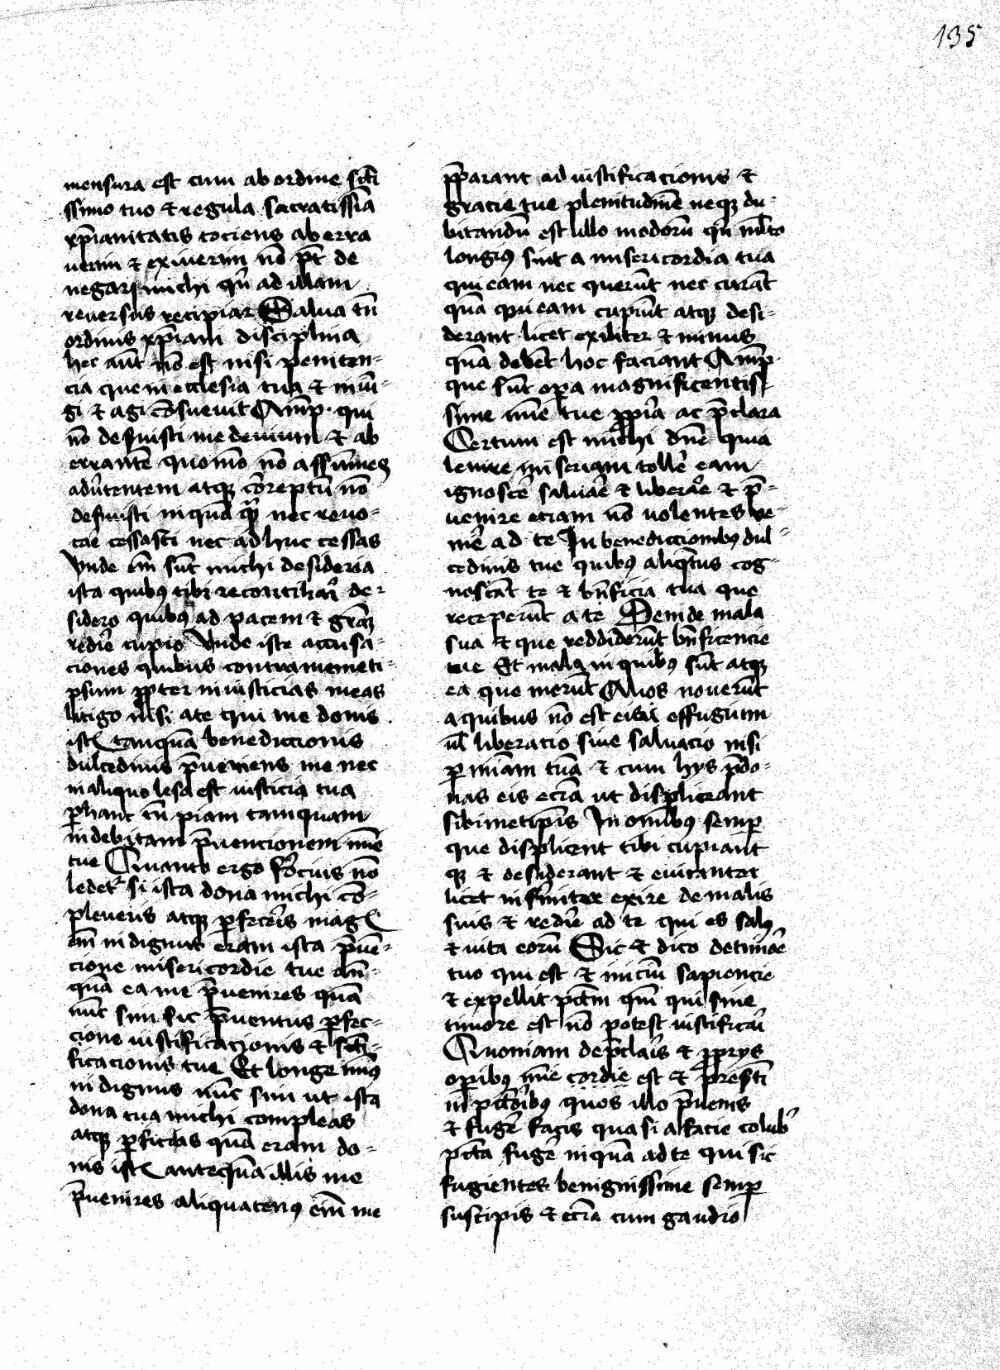 135
mensura est cum ab ordine scti
ssimo tuo et regula sacratissīa
xp̄ianitatis tociens aberra
uerim et exiuerim nō pt̄ de
negari michi qn̄ ad illam
reuersus recipiar Salua tn̄
ordinis xp̄iani disciplina
hec aut̄ nō est nisi peniten-
cia que in ecclesia tua et
gi et agi cōsueuit qui
nō defuisti me deuium et ab
errantē quomō nō assumes
aduertentem atqꝫ correptū nō
defuisti inquā nec reuo-
care cessasti nec adhuc cessas
Vnde em̄ sūt michi desideria
ista quibus tibi reconsiliari de-
sidero quibus ad pacem et grām
redire cupio Vnde iste accusa-
ciones quibus contra memeti-
psum ꝓpter iniusticias meas
litigo nisi a te qui me donis
istis tanquā benediccionis
dulcedinis p̄ueniens me nec
in aliquo lesa est iusticia tua
tn̄ piam tamquam
indebitam p̄uencionem mīe
tue Quanto ergo forcius nō
ledetr̄ si ista dona michi cō-
pleueris atqꝫ ꝑfeceris magis
em̄ indignus eram ista p̄uē-
cione misericordie tue an̄-
quā ea me p̄uenires quā
nūc sim sic p̄uentus ꝑfec-
cione iustificacionis et scti-
ficacionis tue Et longe min9
indignus nūc sim ut ista
dona tua michi compleas
atqꝫ ꝑficias quā eram do-
nis istis antequā illis me
p̄uenires aliquaten9 em̄ me
p̄parant ad iustificacionis et
gracie tue plenitudinē neqꝫ du-
bitandū est illo modorū qn̄ mlto
longius sint a misericordia tua
qui eam nec querūt nec curāt
quā qui eam cupiūt atqꝫ desi-
derant licet exiliter et minus
quā debēt hoc faciant
que sūt oꝑa magnificentis
sime mīe tue ꝓpria ac p̄clara
Certum est michi dn̄e quia
lenire miseriam tollē eam
ignoscē saluare et liberare et p̄-
uenire eciam nō uolentes ve-
nire ad te In benediccionibus dul-
cedinis tue quibus aliqtenus cog-
noscāt te et bn̄ficia tua que
receperūt a te Deinde mala
sua et que reddiderūt bn̄ficencie
tue Et mala in quibus sūt atqꝫ
ea que meruit nouerūt
a quibus nō est eis effugium
ul liberacio siue saluacio nisi
ꝑ mīam tuā et cum hys p̄do-
nas eis ecia ut displiceant
sibimetipsis In omibus semꝑ
que displicent tibi cupiant
qꝫ et desiderant et euitantor
licet infirmiter exire de malis
suis et redire ad te qui es salus
et uita eorū Sic et dico de timore
tuo qui est et iniciū sapiencie
et expellit pctm qm̄ qui sine
timore est nō potest iustificari
Quoniam de p̄claris et ꝓprys
oꝑibus mīe cordie est et
in pctoribus quos illo p̄uenis
et fugere facis quasi a facie colubri
pctā fugere inquā ad te qui sic
fugientes benignissime semꝑ
suscipis et ecia cum gaudio